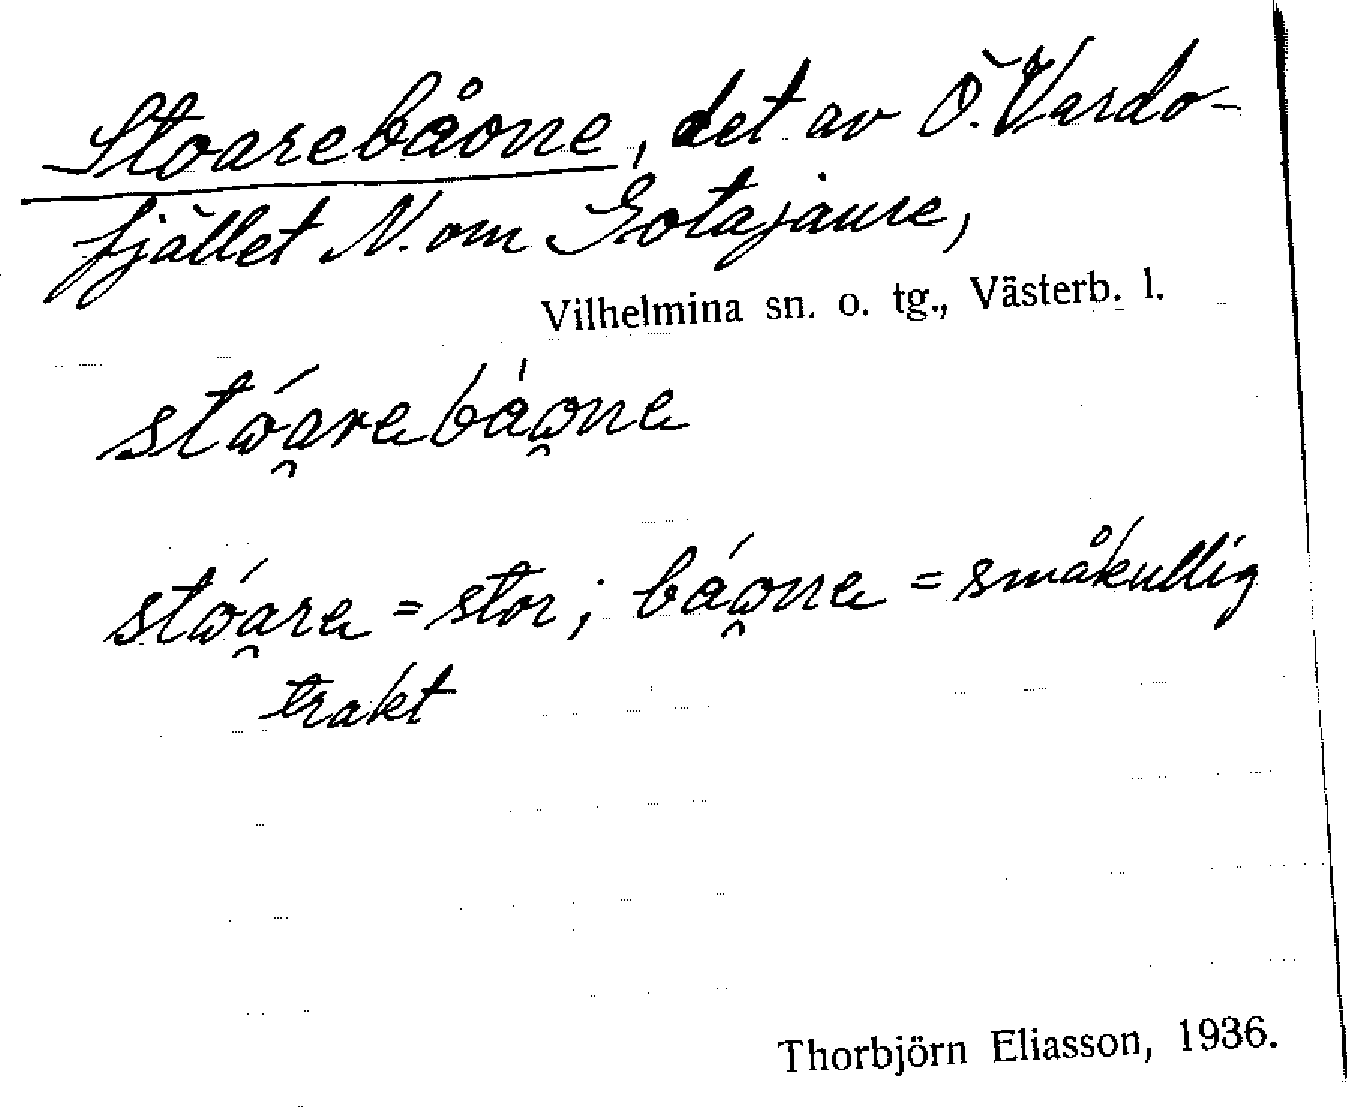 Stoarebåone, det av Ö. Vardo-
fjället N. om Gotajaure,
Vilhelmina sn. o. tg., Västerb. l.
stóa̯rebáo̯ne
stóa̯re = stor; báo̯ne = småkullig
trakt
Thorbjörn Eliasson, 1936.